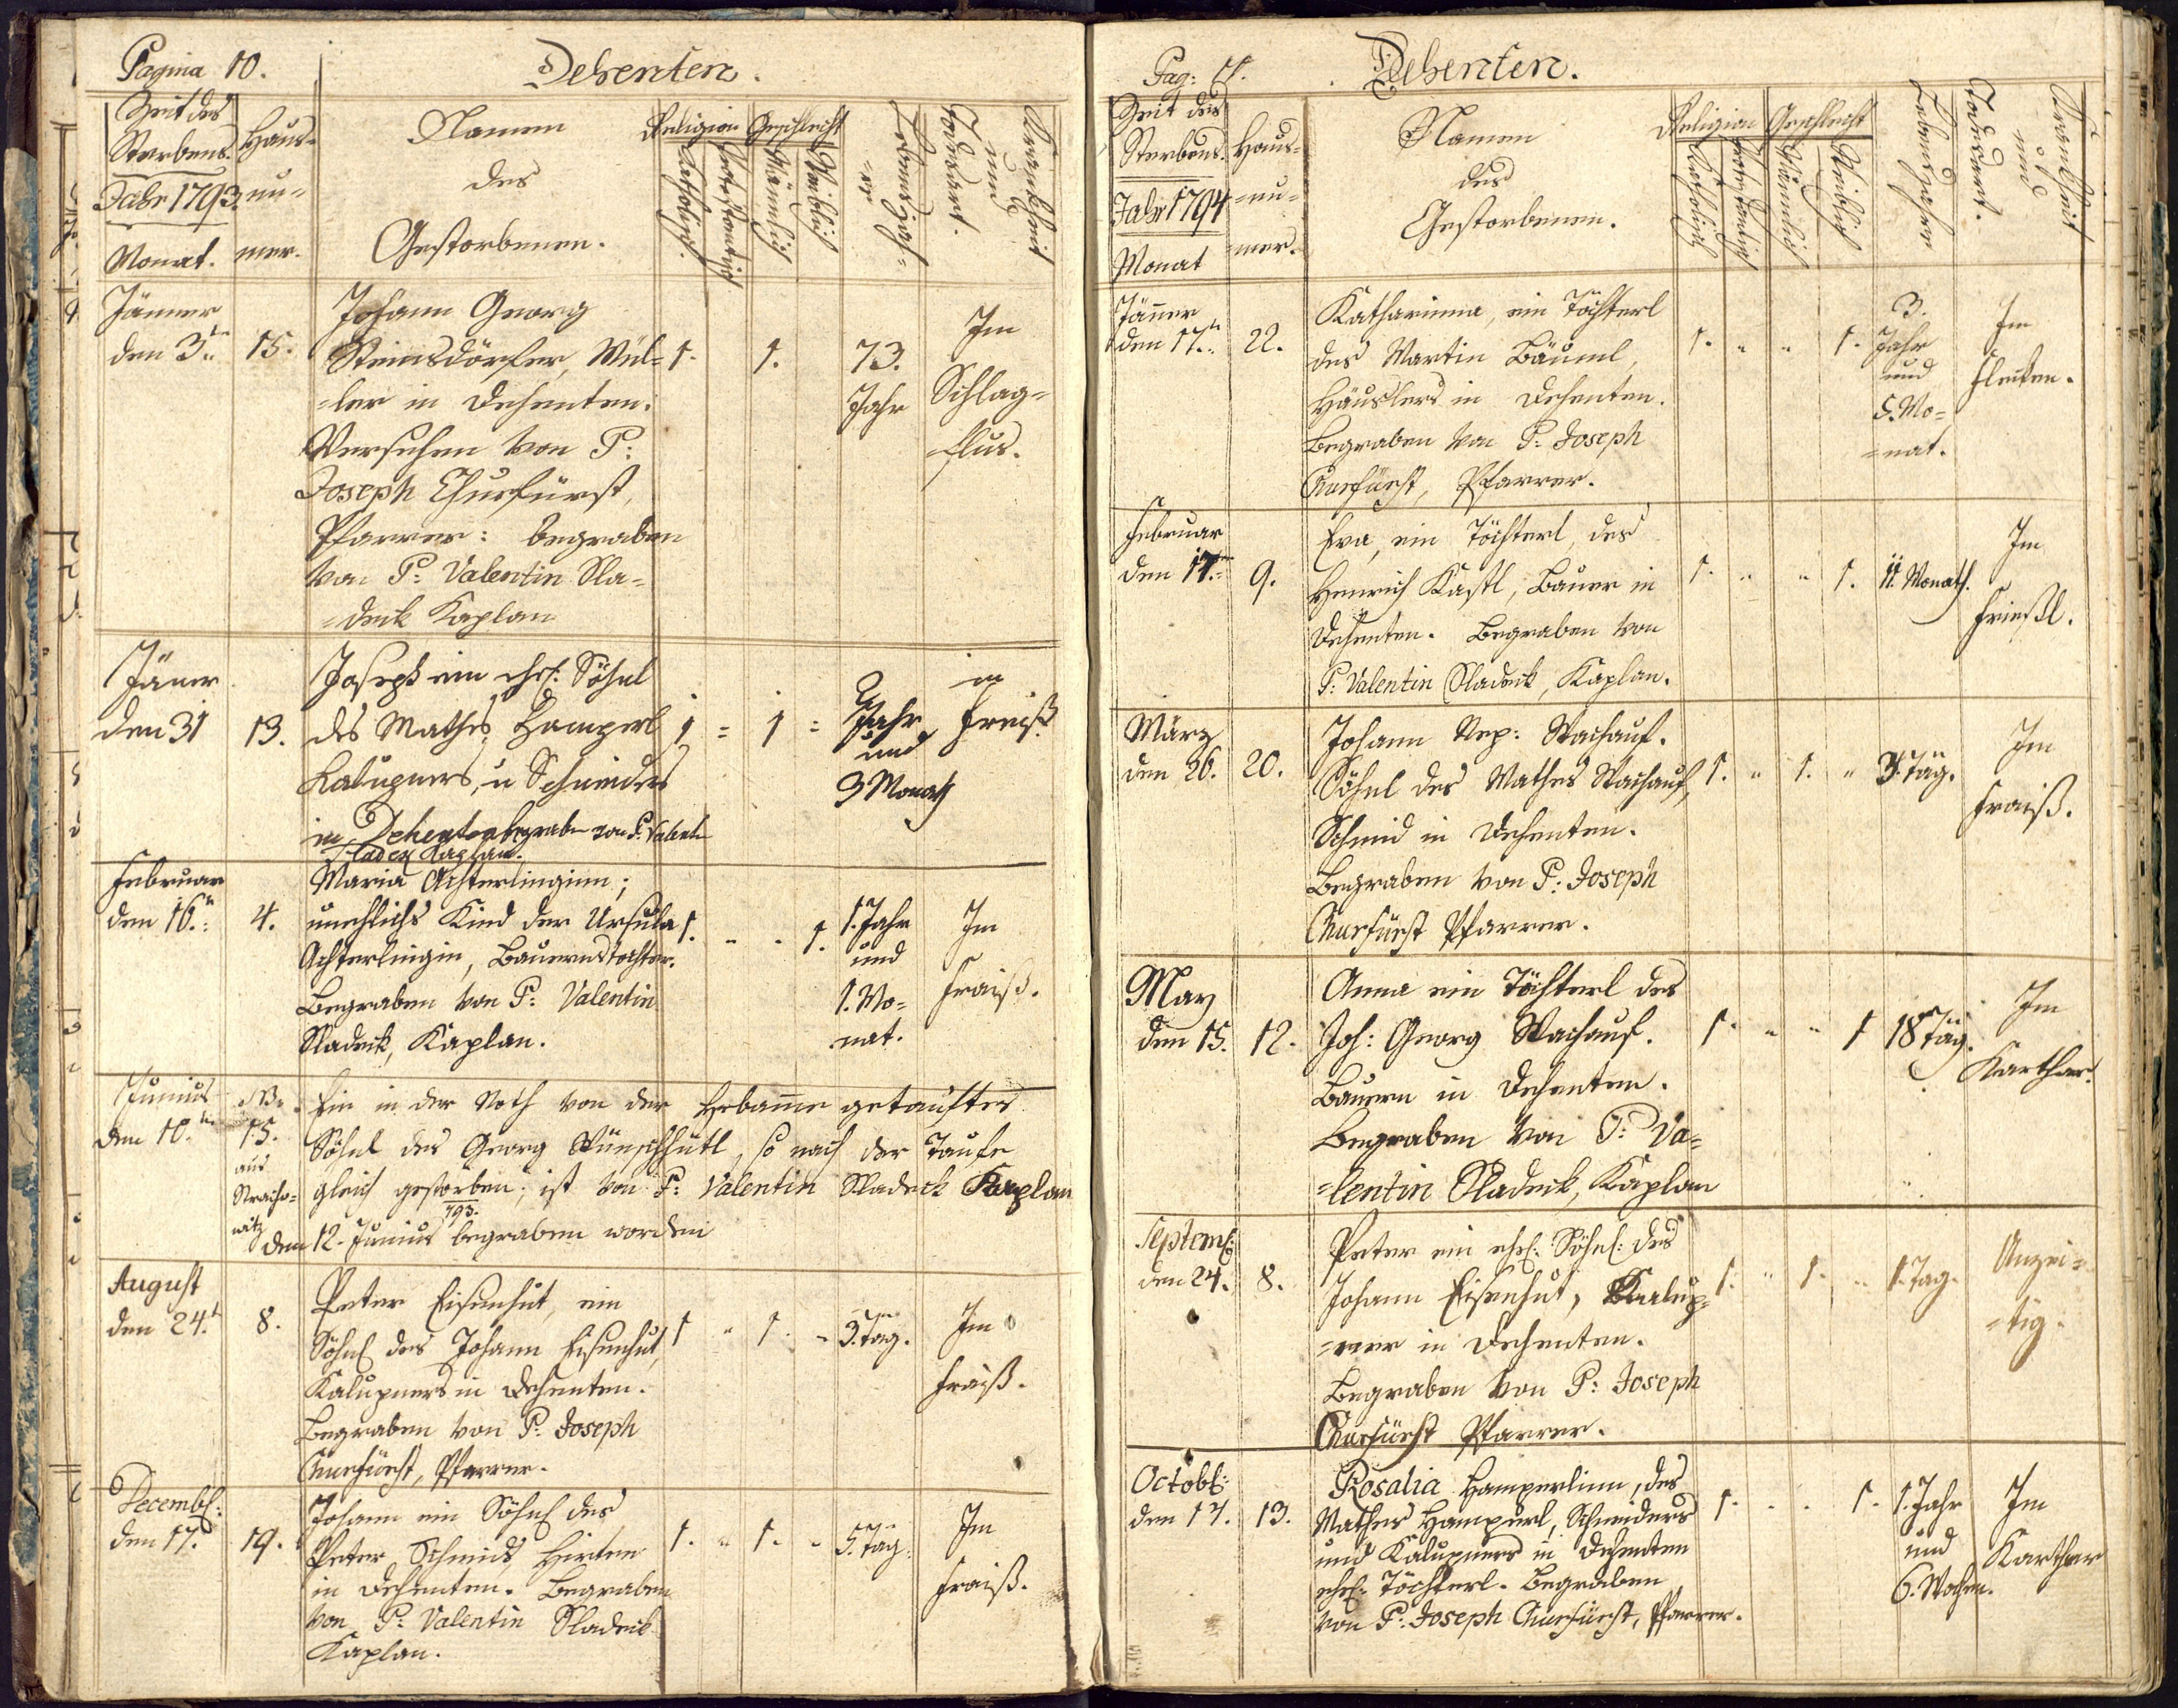 Pagina 10.
Dehenten.
Zeit des
Sterbens.
Jahr 1793.
Monat.
Haus-
nu-
mer.
Namen
des
Gestorbenen.
Religion
Katholisch.
Protestantisch
Geschlecht
Männlich
Weiblich
Lebensjah-
=re
Krankheit
und
Todesart.
Jänner
den 3tn
15.
Johann Georg
Steinsdörfer, Mül-
=ler in Dehenten.
Versehen von P:
Joseph Churfürst,
Pfarrer: begraben
von P: Valentin Sla-
=deck Kaplan
1.
1.
73.
Jahr
Im
Schlag-
flus.
Jäner
den 31
13.
Joseph ein ehel: Söhnl
des Mathes Hamperl
Kalupners, u Schneiders
in Dehenten begraben von P. Valentin
Sladek Kaplan.
1 = 1 =
2
Jahr
und
3 Monath
in
Freiß
Februar
den 16tn
4.
Maria Achterlinginn;
unehlichs Kind der Ursula
Achterlingin, Bauernstochter.
Begraben von P: Valentin
Sladeck, Kaplan.
1. " " 1.
1. Jahr
und
1. Mo-
nat.
Im
Fraiß.
Junius
den 10.tn
NB.
15.
aus
Stracho-
witz
Ein in der Noth von der Hebamme getauftes
Söhnl des Georg Wünschhütl, so nach der Taufe
gleich gestorben; ist von P: Valentin Sladeck Kaplan
793.
den 12. Junius begraben worden
August
den 24.t
8.
Peter Eisenhut, ein
Söhnl des Johann Eisenhut,
Kalupners in Dehenten.
Begraben von P: Joseph
Churfürst, Pfarrer.
1 " 1. "
3. Täg.
Im
Fraiß.
Decembl:
den 17.
19.
Johann ein Söhnl des
Peter Schmids, Hirten
in Dehenten. Begraben
von P: Valentin Sladeck
Kaplan.
1. " 1. "
5. Täg.
Im
Fraiß.
Pag: 11.
Dehenten.
Zeit des
Sterbens.
Jahr 1794
Monat
Haus-
=nu-
=mer.
Namen
des
Gestorbenen.
Religion
Katholisch
Protestantisch
Geschlecht
Männlich
Weiblich
Lebensjahre
Krankheit
und
Todesart.
Jäner
den 17.tn
22.
Katharinna, ein Töchterl
des Martin Bäuml,
Häuslers in Dehenten.
Begraben von P: Joseph
Churfürst, Pfarrer.
1. " " 1.
3.
Jahr
und
5. Mo-
=nat.
Im
Flecken.
Februar
den 17.tn
9.
Eva, ein Töchterl, des
Henrich Kastl, Bauer in
Dehenten. Begraben von
P: Valentin Sladeck, Kaplan.
1. " " 1.
11. Monath.
Im
Frießl.
März
den 26.
20.
Johann Nep: Wachauf.
Söhnl des Mathes Wachauf,
Schmid in Dehenten.
Begraben von P: Joseph
Churfürst Pfarrer.
1. " 1. "
3. Täg.
Im
Fraiß.
May
den 15.
12.
Anna ein Töchterl des
Joh: Georg Wachauf.
Bauern in Dehenten.
Begraben von P: Va-
=lentin Sladeck, Kaplan
1. " " 1
18 Täg.
Im
Karthar.
Septemb:
den 24.
8.
Peter ein ehel: Söhnl: des
Johann Eisenhut, Kalup-
=ner in Dehenten.
Begraben von P: Joseph
Churfürst Pfarrer.
1. " 1. "
1. Tag.
Unzei-
=tig.
Octobl:
den 17.
13.
Rosalia Hamperlinn, des
Mathes Hamperl, Schneiders
und Kalupners in Dehenten
ehel: Töchterl. Begraben
von P: Joseph Churfürst, Pfarrer.
1. " " 1.
1. Jahr
und
6. Wochen.
Im
Karthar